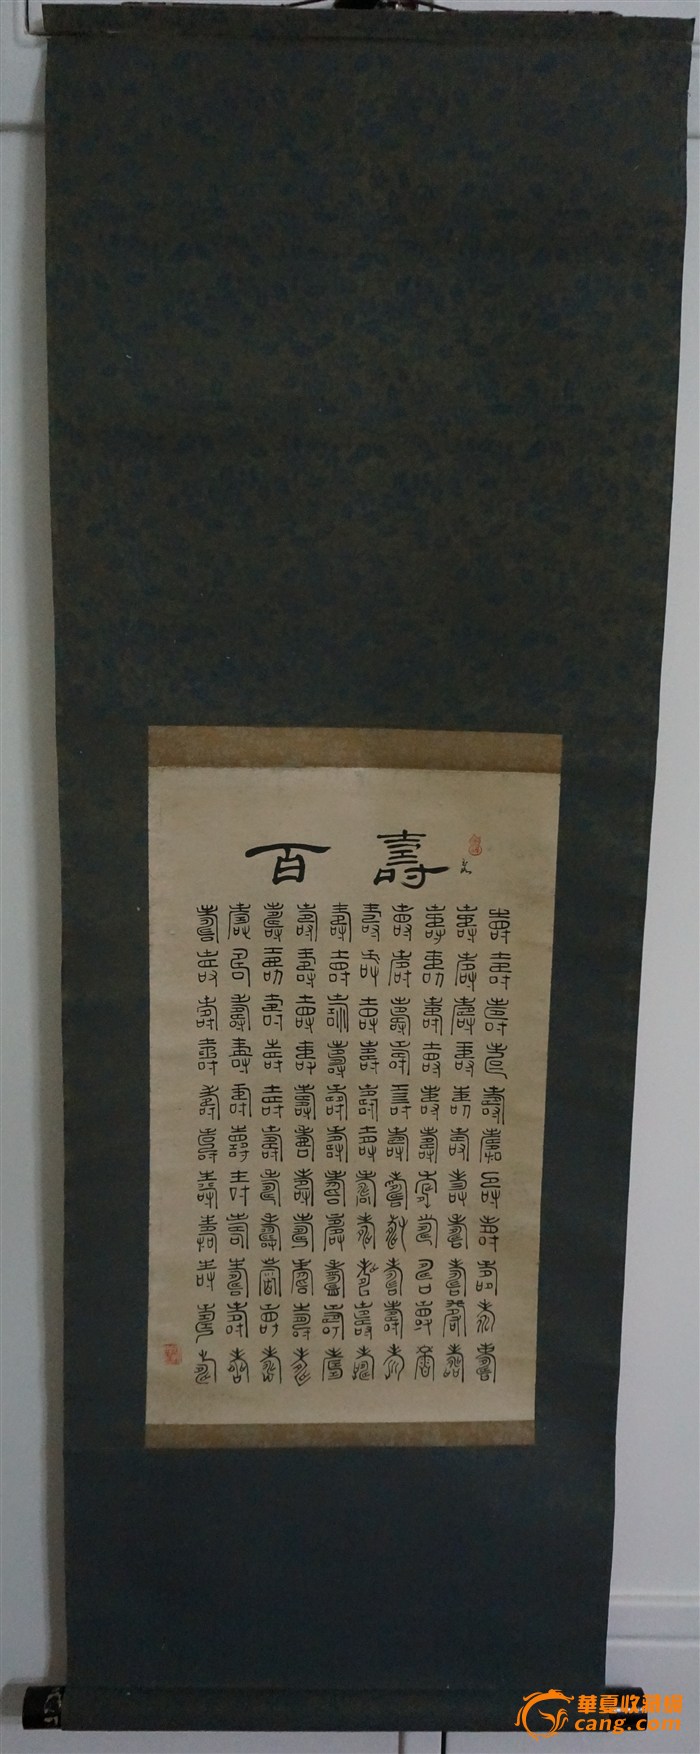 百壽
壽壽壽壽壽壽壽壽壽壽壽
壽壽壽壽壽壽壽壽壽壽壽
壽壽壽壽壽壽壽壽壽壽壽
壽壽壽壽壽壽壽壽壽壽壽
壽壽壽壽壽壽壽壽壽壽壽
壽壽壽壽壽壽壽壽壽壽壽
壽壽壽壽壽壽壽壽壽壽壽
壽壽壽壽壽壽壽壽壽壽壽
壽壽壽壽壽壽壽壽壽壽壽
壽壽壽壽壽壽壽壽壽壽壽
華夏收藏網
cang.com